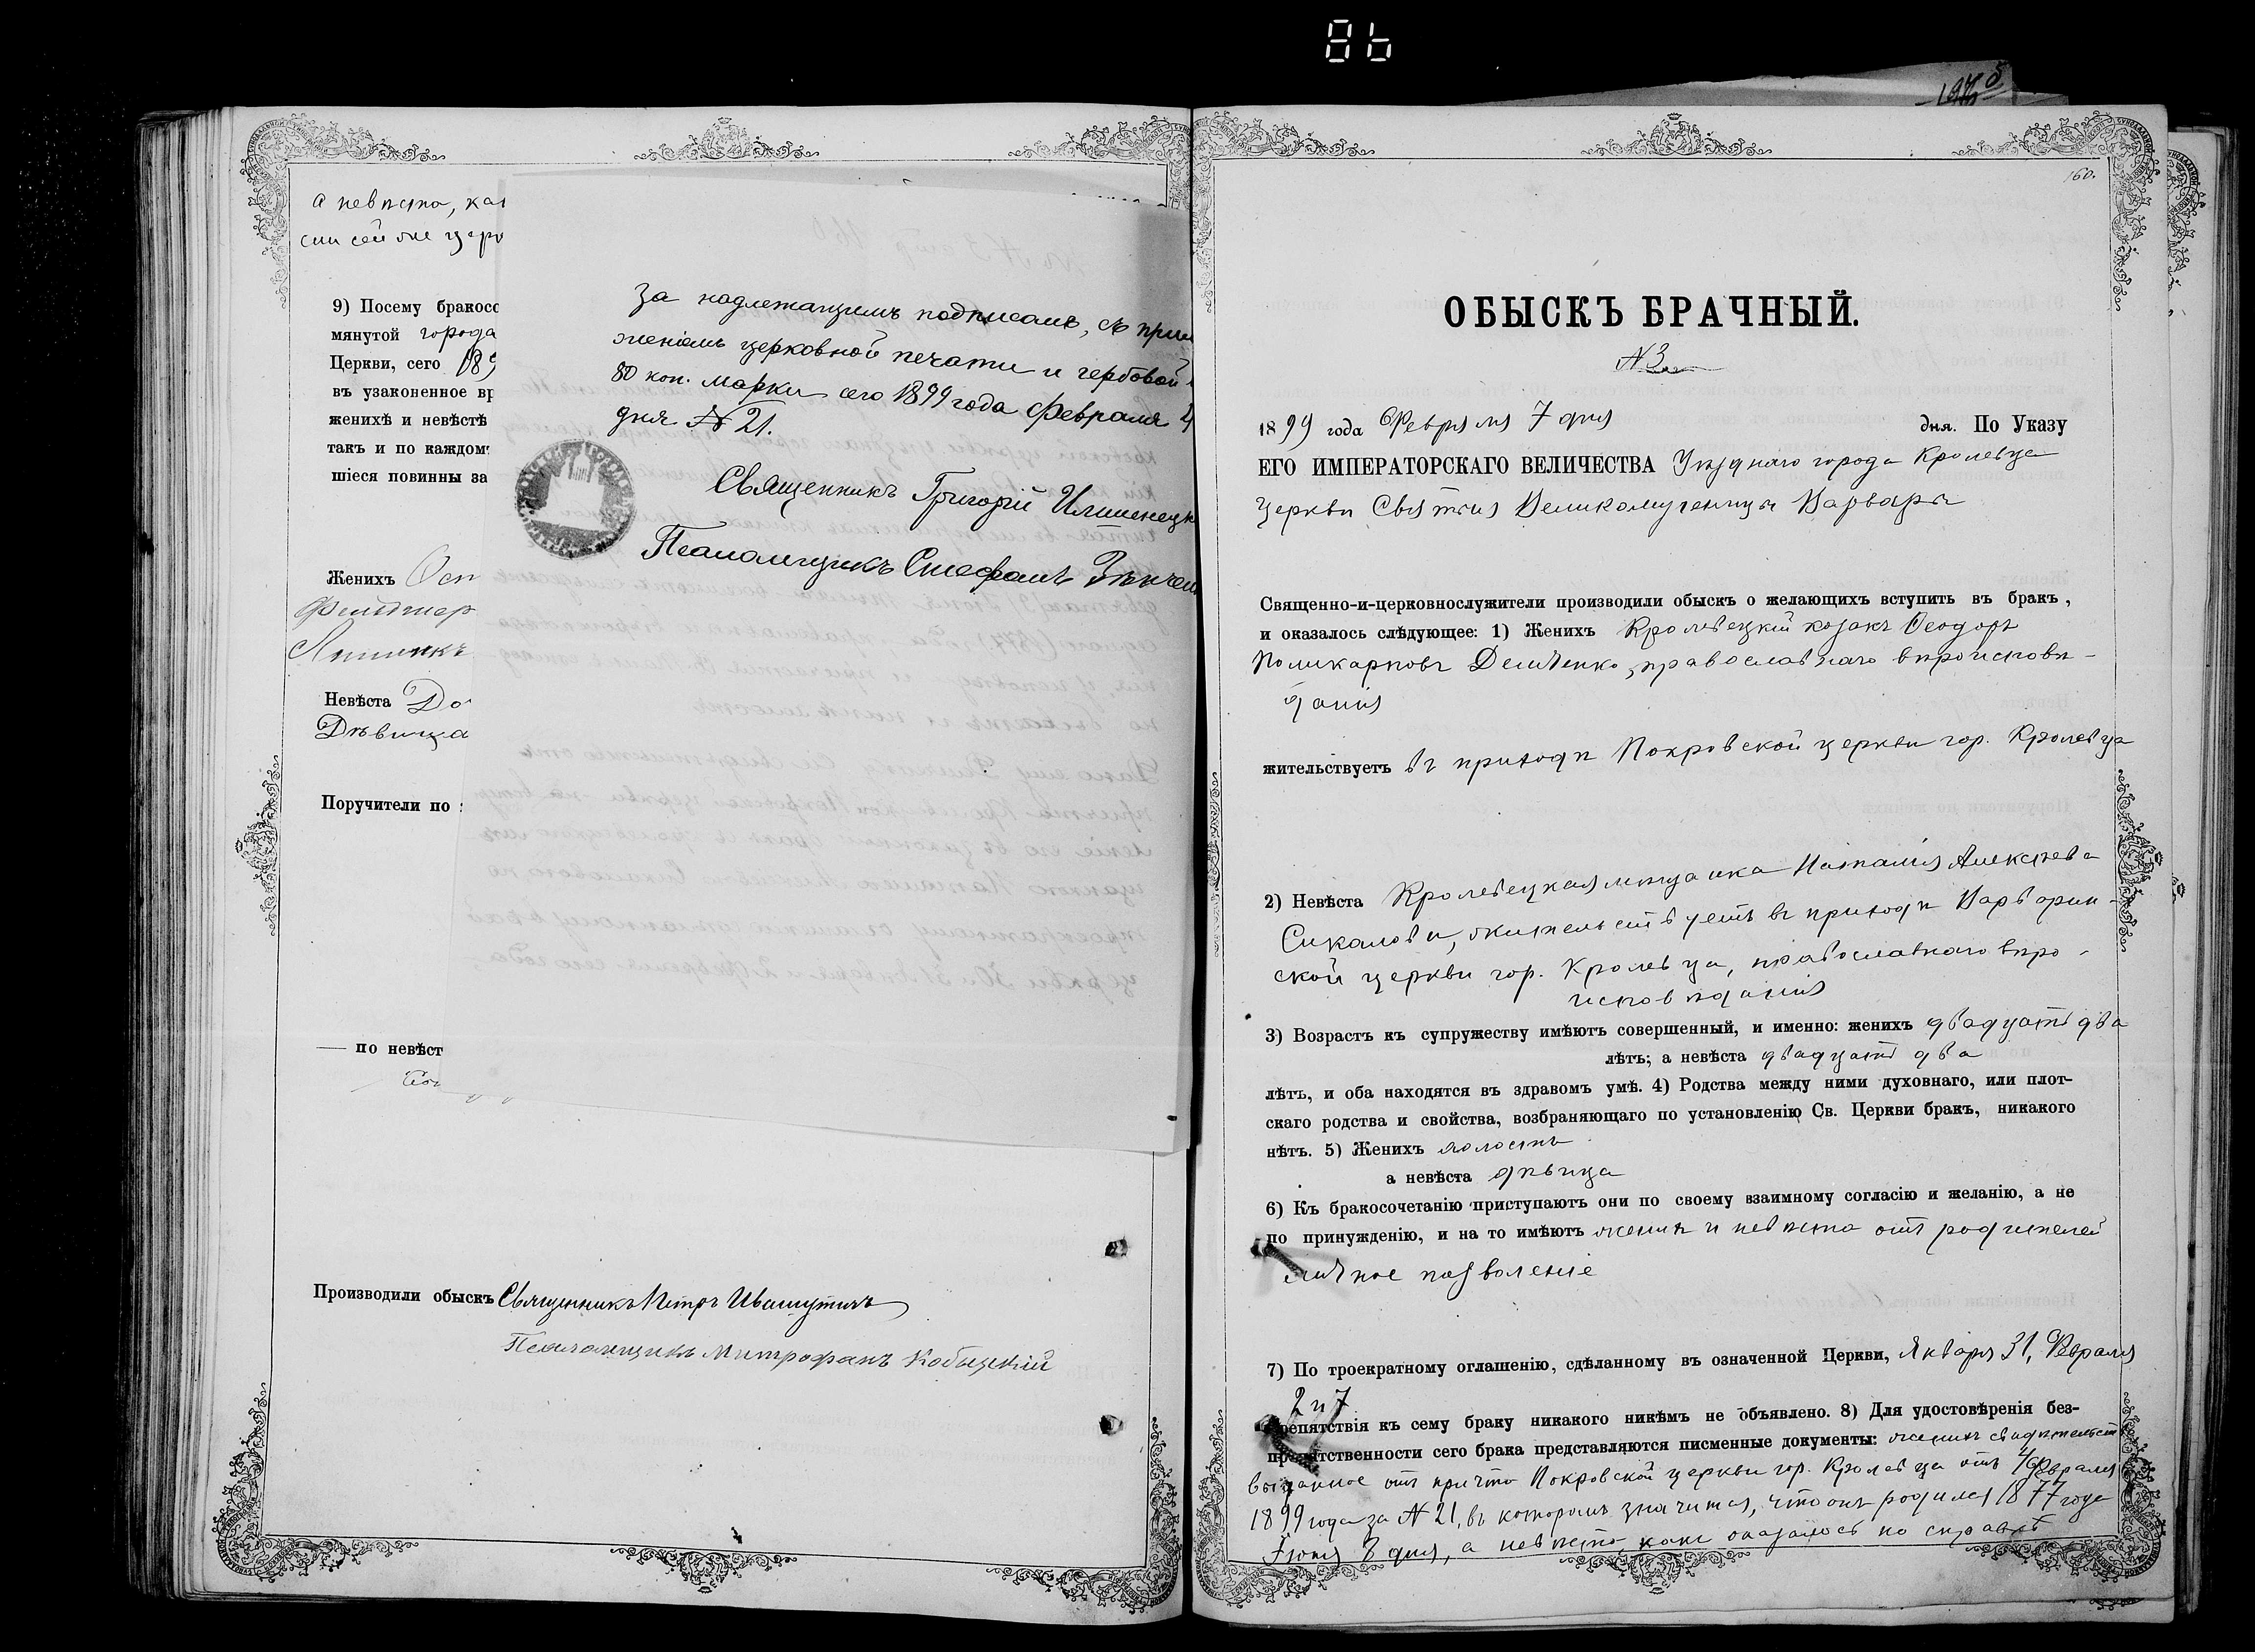 86
а невѣста, ка
сии сей же цер
9) Посему бракосо
мянутой города
Церкви, сего 189
въ узаконенное вр
женихѣ и невѣстѣ
такъ и по каждом
шіеся повинны за
Женихъ Осн
Фельдшер
Невѣста До
Дѣвица
Поручители по
— по невѣст
за надлежащимъ подписомъ, съ прил
женіемъ церковной печати и гербовой
80 коп. марки сего 1899 года Февраля 4
дня № 21.
Священникъ Григорій
Псаломщикъ Стефанъ
Производили обыскъ Священникъ Петръ Ивашутичъ
Псаломщикъ Митрофанъ Кобыцкій
160.
ОБЫСКЪ БРАЧНЫЙ.
№ 3
1899 года Февраля 7 дня дня. По Указу
ЕГО ИМПЕРАТОРСКАГО ВЕЛИЧЕСТВА Уѣзднаго города Кролевца
Церкви Святыя Великомученицы Варвары
Священно-и-церковнослужители производили обыскъ о желающихъ вступить въ бракъ,
и оказалось слѣдующее: 1) Женихъ Кролевецкій козакъ Ѳеодоръ
Поликарповъ Демченко, православнаго вѣроисповѣ-
данія
жительствуетъ въ приходѣ Покровской церкви гор. Кролевца
2) Невѣста Кролевецкая мѣщанка Наталія Алексѣева
Сикалова, жительствуетъ въ приходѣ Варварин-
ской церкви гор. Кролевца, православнаго вѣро-
исповѣданія
3) Возрастъ къ супружеству имѣютъ совершенный, и именно: женихъ двадцать два
лѣтъ; а невѣста двадцать два
лѣтъ, и оба находятся въ здравомъ умѣ. 4) Родства между ними духовнаго, или плот-
скаго родства и свойства, возбраняющаго по установленію Св. Церкви бракъ, никакого
нѣтъ. 5) Женихъ холостъ
а невѣста дѣвица
6) Къ бракосочетанію приступаютъ они по своему взаимному согласію и желанію, а не
по принужденію, и на то имѣютъ женихъ и невѣста отъ родителей
личное позволеніе
7) По троекратному оглашенію, сдѣланному въ означенной Церкви, Января 31, Февраля
2 и 7
препятствія къ сему браку никакого никѣмъ не объявлено. 8) Для удостовѣренія без-
препятственности сего брака представляются писменные документы: женихъ свидѣтельство
выданное отъ причта Покровской церкви гор. Кролевца отъ 4 Февраля
1899 года за № 21, въ которомъ значится, что онъ родился 1877 года
Іюня 8 дня, а невѣста, какъ оказалось по справкѣ